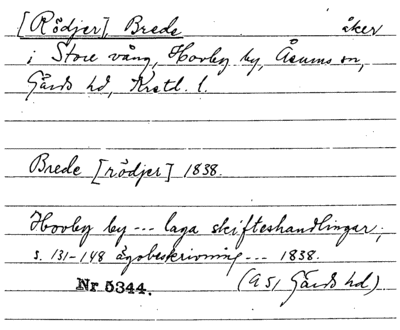 [Rödjer] Brede åker
i Store vång, Hovby by, Åsums sn,
Gärds hd, Krstl. l.
Brede [rödjer] 1838.
Hovby by --- laga skifteshandlingar,
s. 131-148 ägobeskrivning --- 1838.
Nr 5344. (A 51 Gärds hd)